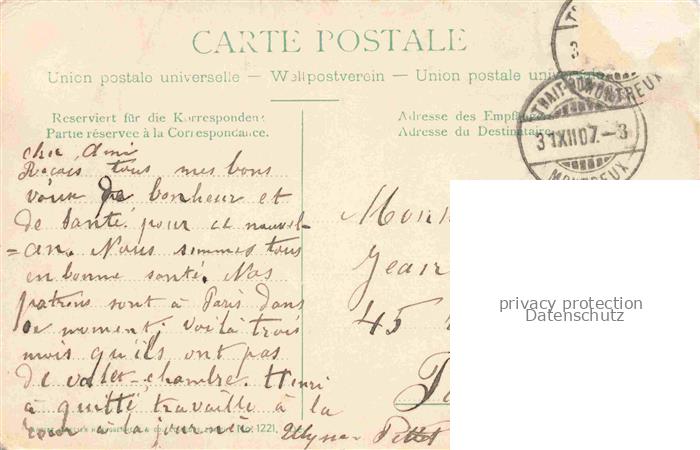 CARTE POSTALE
Union postale universelle — Weltpostverein — Union postale universelle
Reserviert für die Korrespondenz
Partie réservée à la Correspondance.
Adresse des Empfängers
Adresse du Destinataire
TRAIT-MONTREUX
31 XII 07. - 3
MONTREUX
cher Ami
Reçois tous mes bons
vœux de bonheur et
de santé pour ce nouvel-
=an. Nous sommes tous
en bonne santé. Nos
patrons sont à Paris dans
ce moment; voilà trois
mois qu'ils ont pas
de valet-chambre. Henri
a quitté travaille à la
à la journée
No. 1221.
Ulysse Pittet
Jean
45
privacy protection
Datenschutz